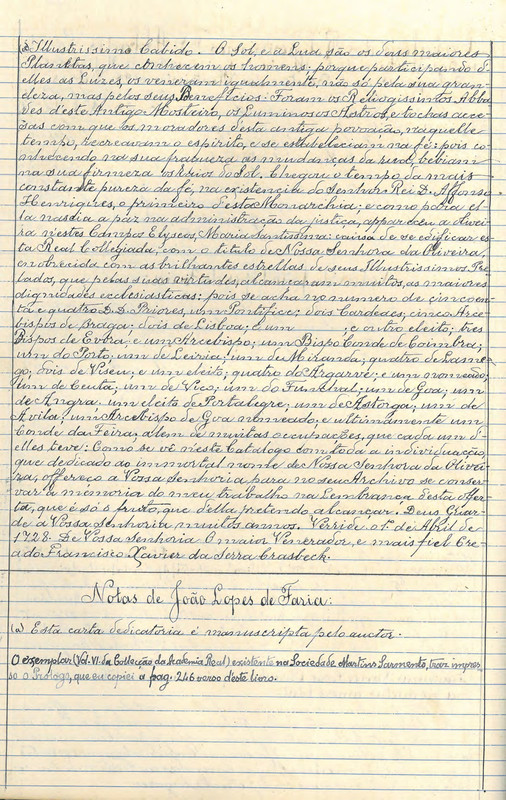 (a) Illustrissimo Cabido. O Sol, e a Lua são os dous maiores
Planetas, que conhecem os homens; porque participando d'
elles as Luzes, os veneram igualmente, não só pela sua gran-
deza, mas pelos seus Beneficios. Foram os Religiosissimos Abba-
des d'este Antigo Mosteiro, os Luminosos Astros, e tochas acce-
zas com que os moradores desta antiga povoação, naquelle
tempo, recreavam o espirito, e se estabeleciam na fé; pois co-
nhecendo na sua fraqueza as mudanças da
na sua firmeza os do Sol. Chegou o tempo da mais
constante pureza da fé, na existencia do Senhor Rei D. Affonso
Henriques, o primeiro d'esta Monarchia; e como para el-
la nascia a paz na administração da justiça, appareceu a Olivei-
ra n'estes Campos Elyseos, Maria Santissima: causa de se edificar es-
ta Real Collegiada, com o titulo de Nossa Senhora da Oliveira,
enobrecida com as brilhantes estrellas de seus Illustrissimos Pre-
lados, que pelas suas virtudes, alcançaram muitos, as maiores
dignidades ecclesiasticas: pois se acha no numero de cincoen-
ta e quatro D.D. Priores, um Pontifice; dois Cardeaes; cinco Arce-
bispos de Braga; dois de Lisboa; e um ; e outro eleito; tres
Bispos de Evora e um Arcebispo; um Bispo Conde de Coimbra;
um do Porto, um de Leiria; um de Miranda; quatro de Lame-
go; dois de Viseu; e um eleito; quatro do Algarve; e um nomeado;
um de Ceuta; um de Vico; um do Funchal; um de Goa; um
de Angra, um eleito de Portalegre; um de Astorga; um de
Avila; um Arcebispo de Goa nomeado; e ultimamente um
Conde da Feira; alem de muitas occupações, que cada um d'
elles teve: Como se vê neste Catalogo com toda a individuação,
que dedicado ao immortal nome de Nossa Senhora da Olivei-
ra, offereço a Vossa Senhoria, para no seu Archivo se conser-
var a memoria do meu trabalho na lembrança desta offer-
ta, que é só o fruto, que della pretendo alcançar. Deus Guar-
de a Vossa Senhoria muitos annos. Verride o 1º de Abril de
1728. De Vossa Senhoria O maior Venerador, e mais fiel Cre-
ado Francisco Xavier da Serra Crasbeck.
Notas de João Lopes de Faria:
(a) Esta carta dedicatoria é manuscripta pelo auctor.
O exemplar (Vol. VI da Collecção da Academia Real) existente na Sociedade Martins Sarmento, traz impres-
so o Prologo, que eu copiei a pag. 246 verso deste livro.